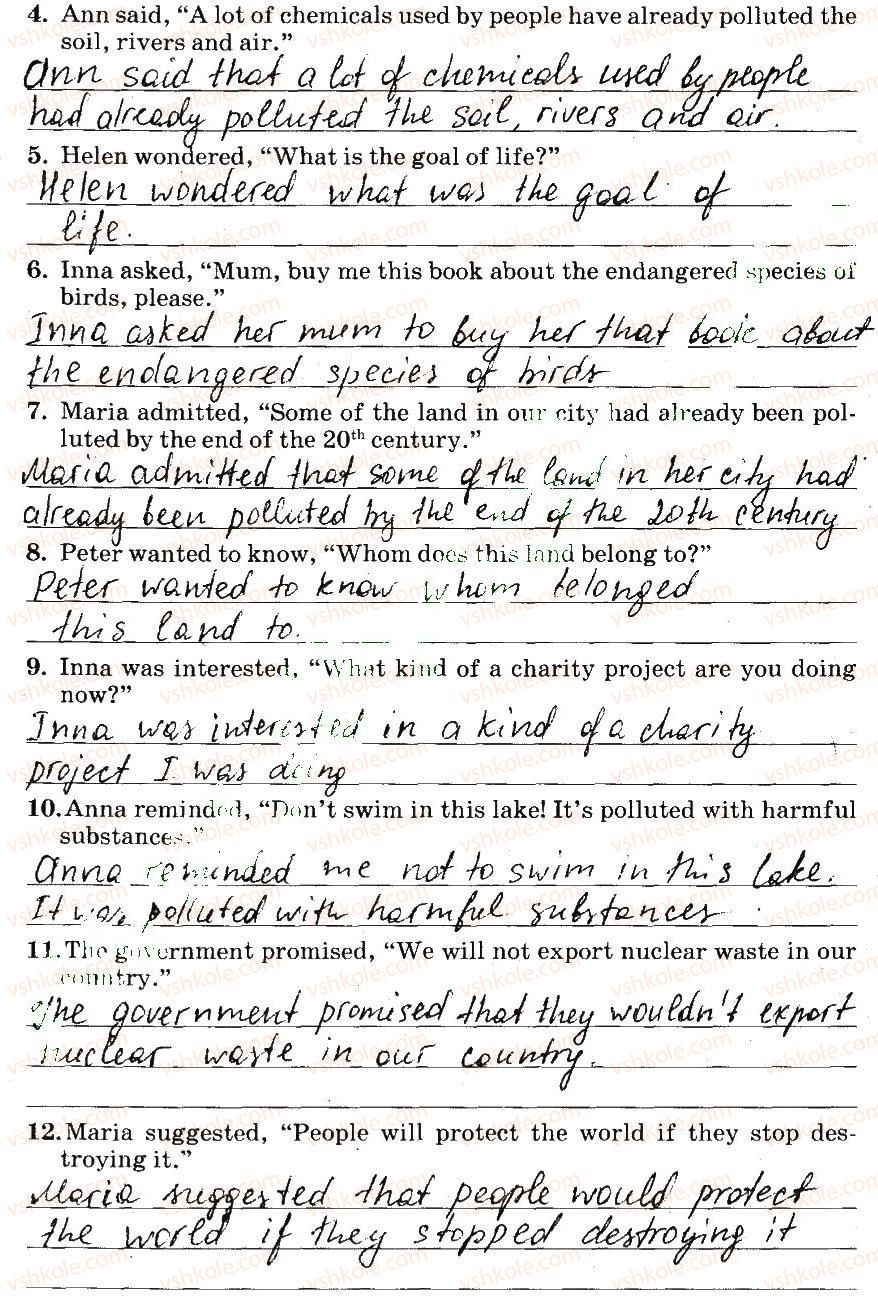 4. Ann said, “A lot of chemicals used by people have already polluted the
soil, rivers and air.”
Ann said that a lot of chemicals used by people
had already polluted the soil, rivers and air.
5. Helen wondered, “What is the goal of life?”
Helen wondered what was the goal of
life.
6. Inna asked, “Mum, buy me this book about the endangered species of
birds, please.”
Inna asked her mum to buy her that book about
the endangered species of birds
7. Maria admitted, “Some of the land in our city had already been pol-
luted by the end of the 20th century.”
Maria admitted that some of the land in her city had
already been polluted by the end of the 20th century
8. Peter wanted to know, “Whom does this land belong to?”
Peter wanted to know whom belonged
this land to.
9. Inna was interested, “What kind of a charity project are you doing
now?”
Inna was interested in a kind of a charity
project I was doing
10. Anna reminded, “Don’t swim in this lake! It’s polluted with harmful
substances.”
Anna reminded me not to swim in this lake.
It was polluted with harmful substances.
11. The government promised, “We will not export nuclear waste in our
country.”
The government promised that they wouldn't export
nuclear waste in our country.
12. Maria suggested, “People will protect the world if they stop des-
troying it.”
Maria suggested that people would protect
the world if they stopped destroying it